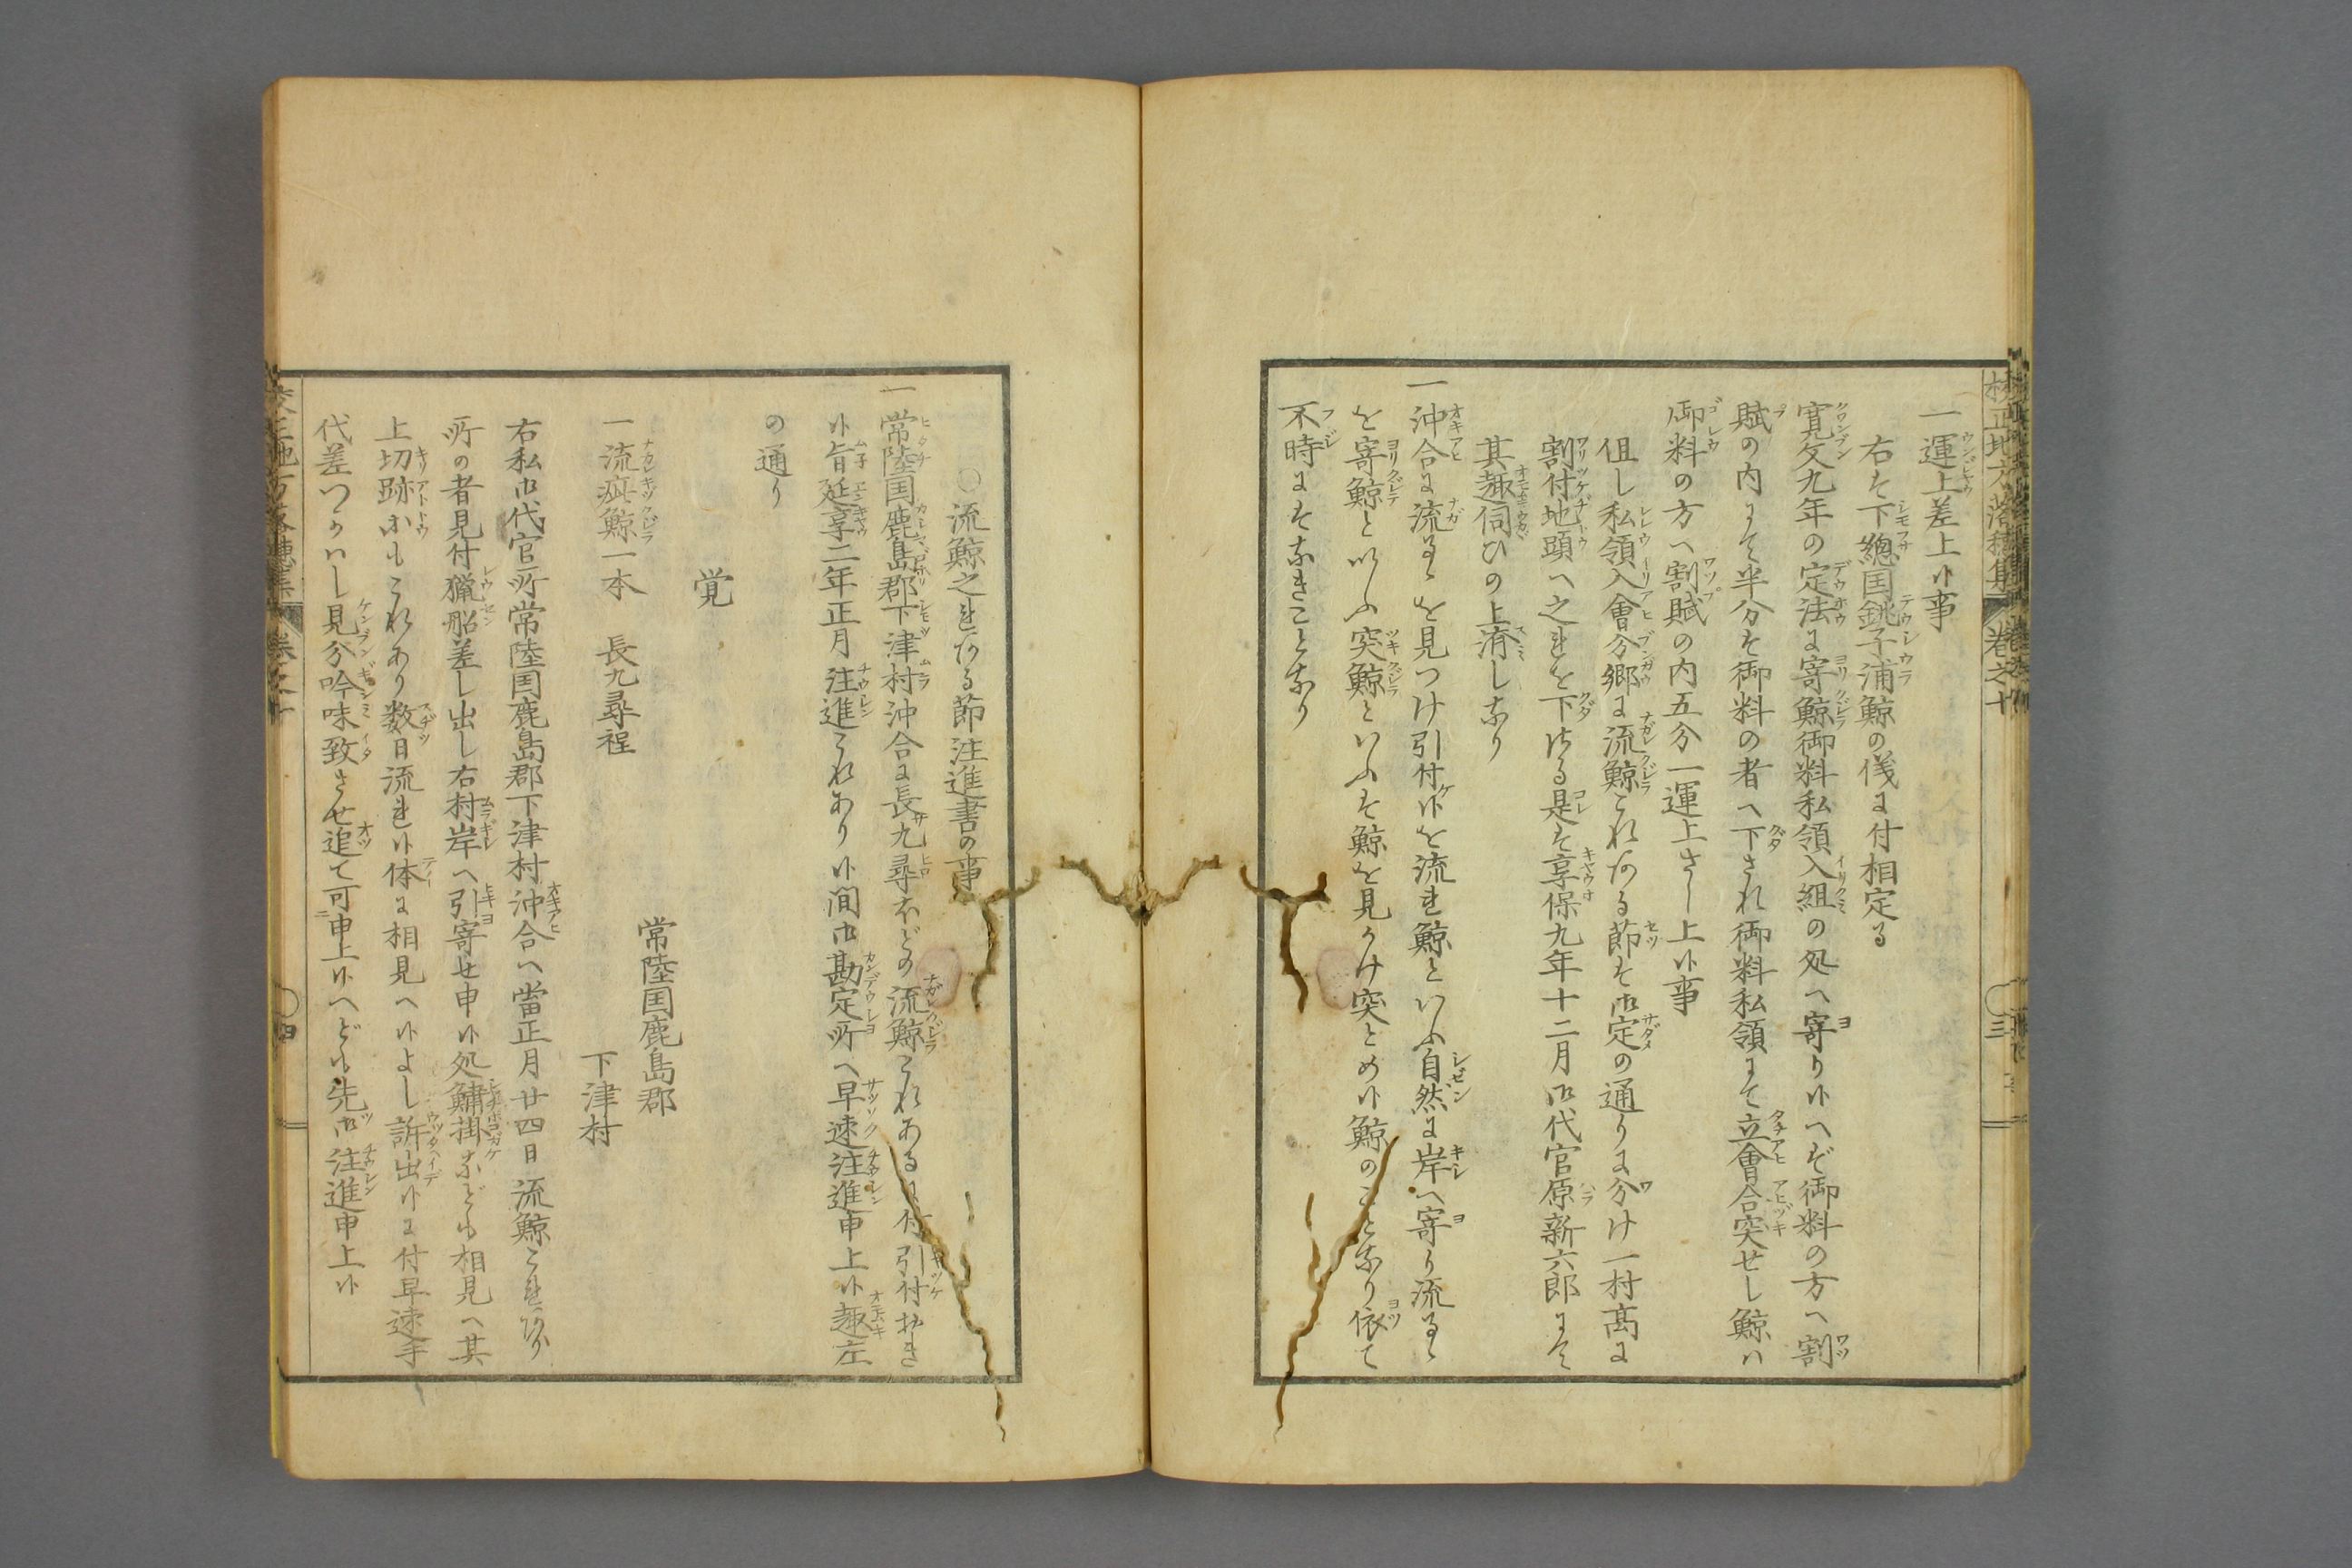 校正地方落穂集 巻之十 〇三
一運上差上候事
右は下總国銚子浦鯨の儀に付相定る
寛文九年の定法に寄鯨御料私領入組の処へ寄り候へば御料の方へ割
賦の内にて半分は御料の者へ下され御料私領にて立會合突せし鯨ハ
御料の方へ割賦の内五分一運上さし上候事
但し私領入會分郷に流鯨これある節は御定の通りに分け一村高に
割付地頭へ之れを下さる是は享保九年十二月御代官原新六郎にて
其趣伺ひの上済しなり
一沖合に流るゝを見つけ引付候を流れ鯨といふ自然に岸へ寄り流るゝ
を寄鯨といふ突鯨といふは鯨を見かけ突とめ候鯨のことなり依て
不時にはなきことなり
〇流鯨之れある節注進書の事
一常陸国鹿島郡下津村沖合に長九尋ほどの流鯨これあるに付引付おき
候旨延享二年正月注進これあり候間御勘定所へ早速注進申上候趣左
の通り
覚
常陸国鹿島郡
下津村
一流疵鯨一本 長九尋程
右私御代官所常陸国鹿島郡下津村沖合へ當正月廿四日流鯨これあり
所の者見付猟船差し出し右村岸へ引寄せ申候処鯆掛なども相見へ其
上切跡等もこれあり数日流れ候体に相見へ候よし訴出候に付早速手
代差つかハし見分吟味致させ追て可申上候へども先御注進申上候